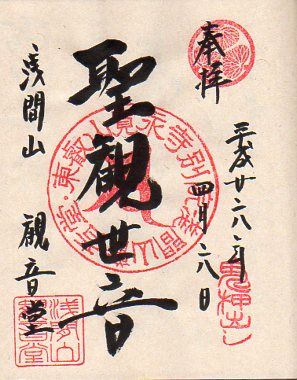 奉拝
平成廿
四月 日
聖観世音
浅間山 観音堂
東叡山寛永寺別院浅間山観音堂
鬼押出し
浅間山
観音堂